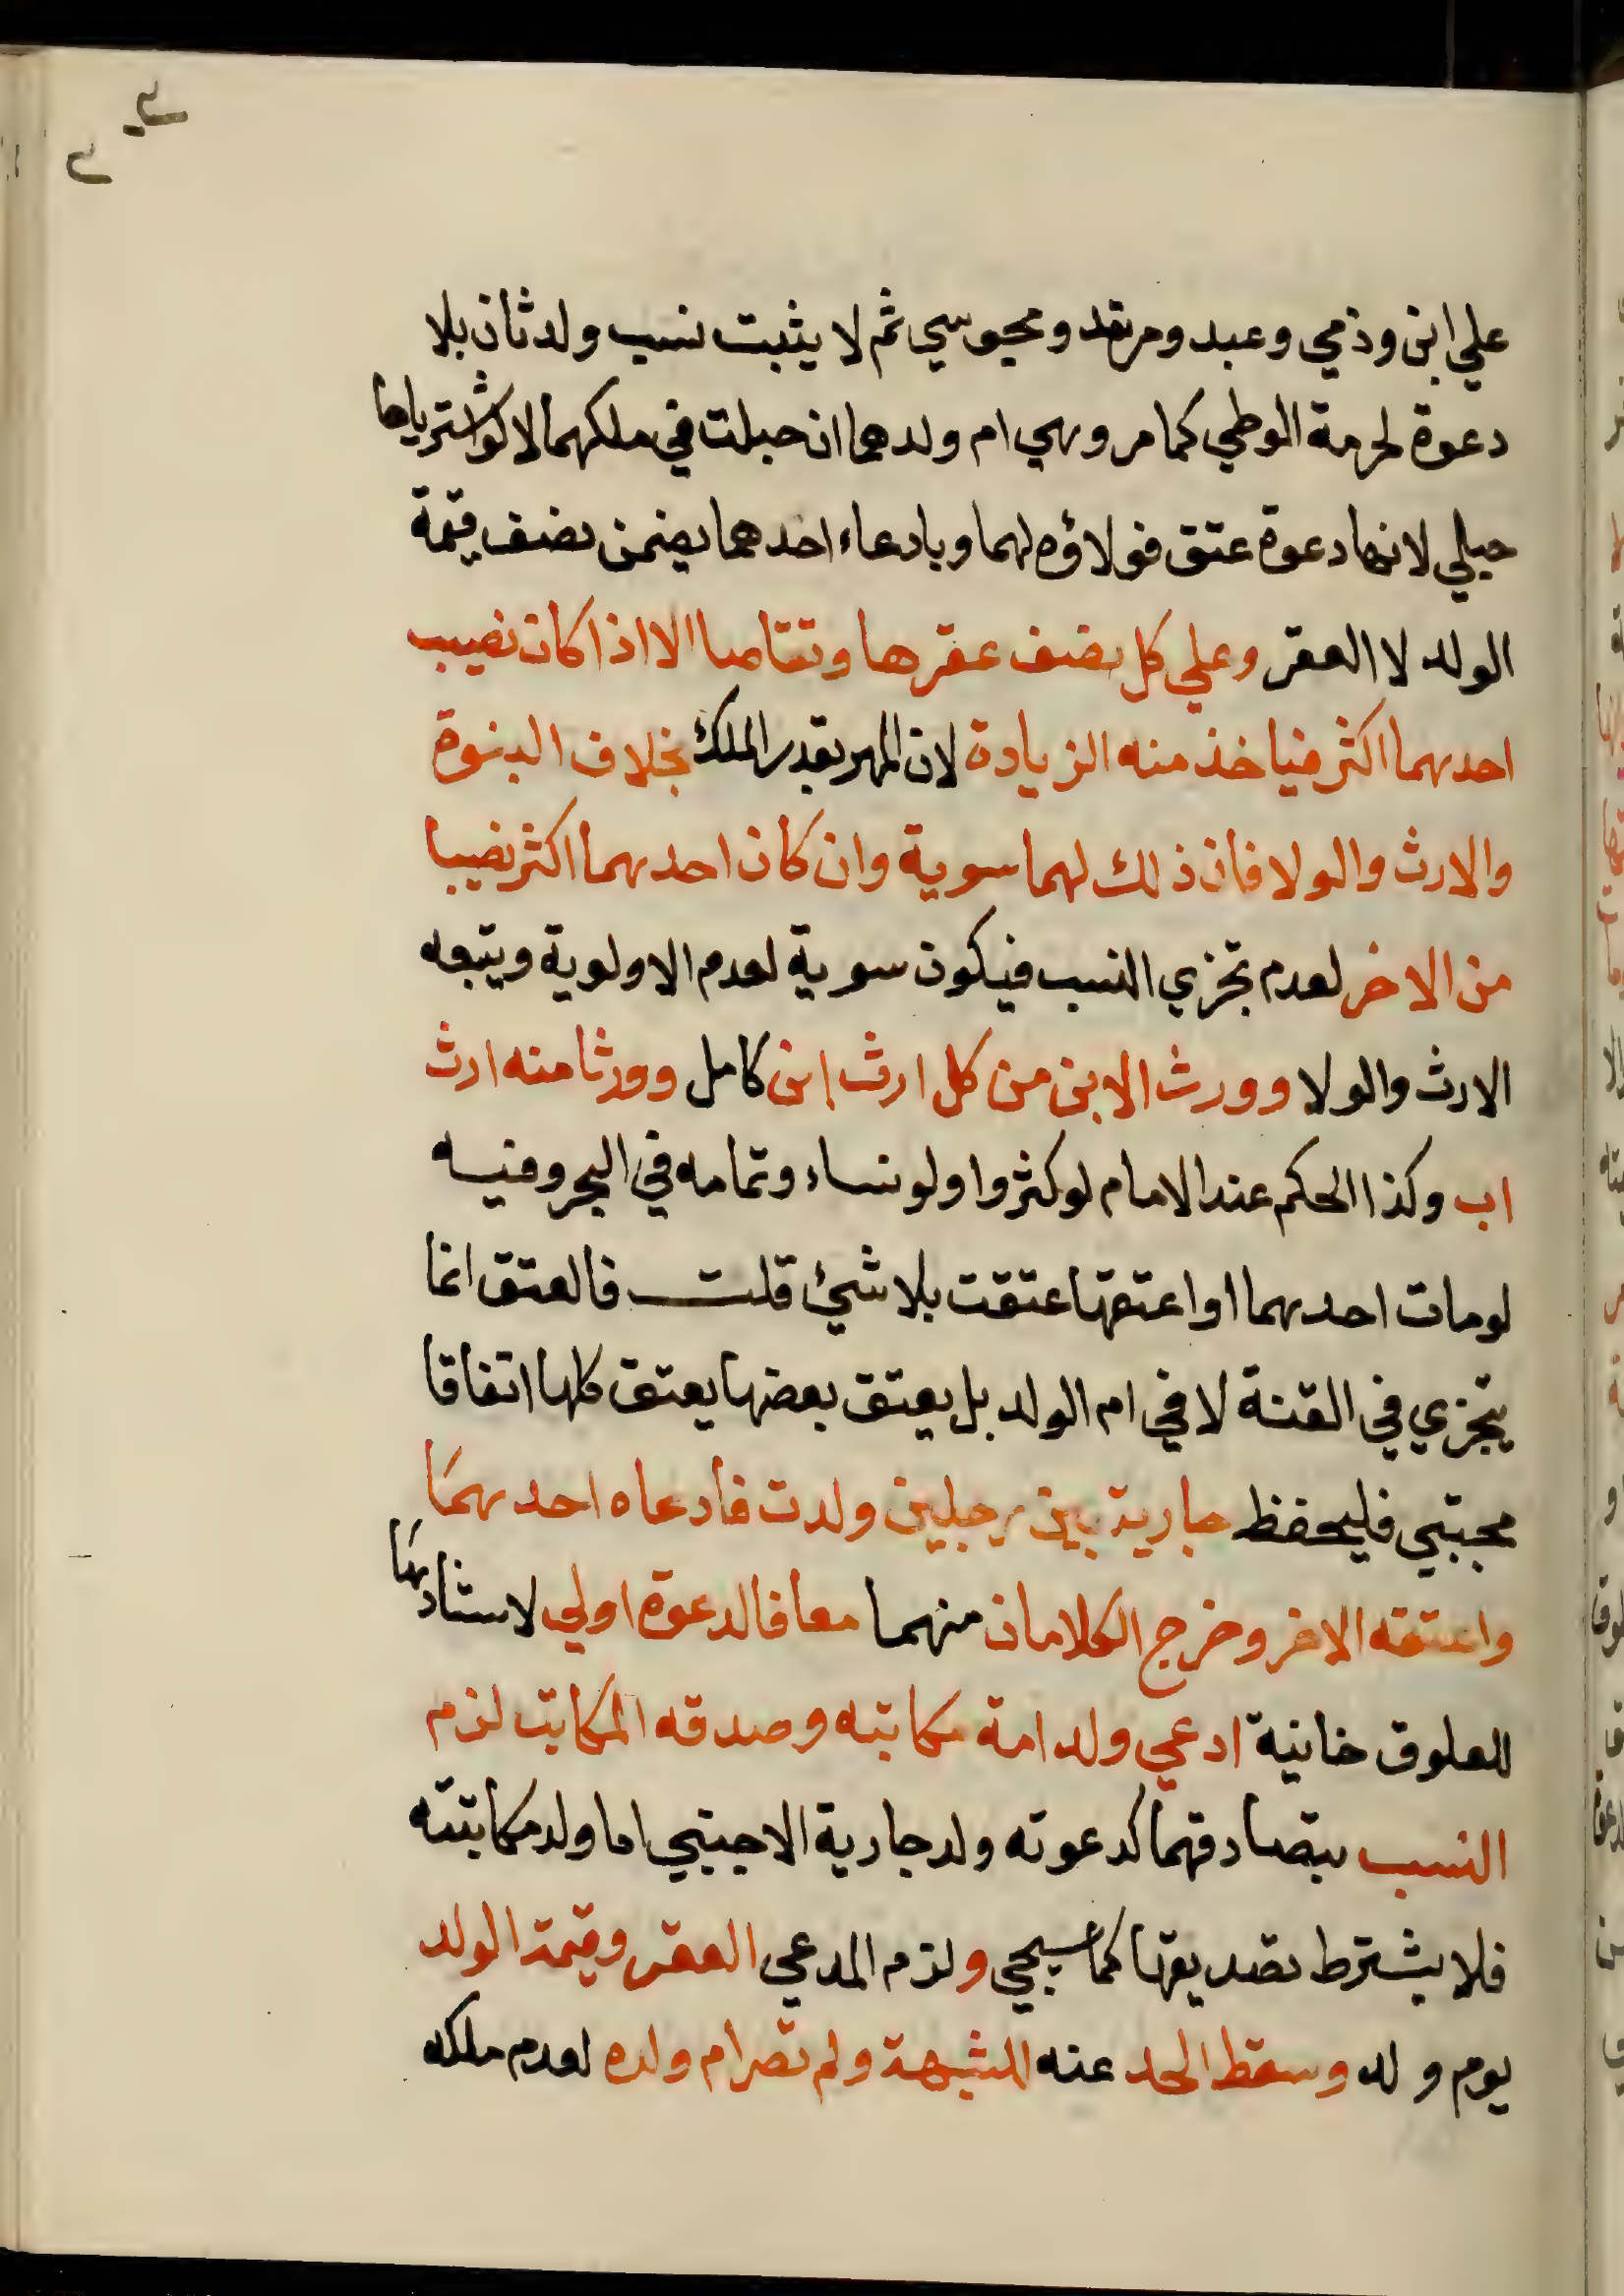 علي ابن وذمي وعبد ومرتد ومجوسي ثم لا يثبت نسب ولد ثان بلا
دعوة لحرمة الوطي كما مر وهي ام ولدهما ان حبلت في ملكهما لا لو اشترياها
حبلي لانها دعوة عتق فولاؤه لهما وبادعاء احدهما يضمن نصف قيمة
الولد لا العقر وعلي كل نصف عقرها وتقاصا الا اذا كان نصيب
احدهما اكثر فياخذ منه الزيادة لان المهر بقدر الملك بخلاف البنوة
والارث والولا فان ذلك لهما سوية وان كان احدهما اكثر نصيبا
من الاخر لعدم تجزي النسب فيكون سوية لعدم الاولوية ويتبعه
الارث والولا وورث الابن من كل ارث ابن كامل وورثا منه ارث
اب وكذا الحكم عند الامام لو كثروا ولو نساء وتمامه في البحر وفيه
لو مات احدهما او اعتقها عتقت بلا شيئ قلت فالعتق انما
يتجزي في القنة لا في ام الولد بل يعتق بعضها يعتق كلها اتفاقا
مجتبي فليحفظ جارية بين رجلين ولدت فادعاه احدهما
واعتقه الاخر وخرج الكلامان منهما معا فالدعوة اولي لاستنادهما
للعلوق خانية ادعي ولد امة مكاتبه وصدقه المكاتب لزم
النسب بتصادقهما كدعوته ولد جارية الاجنبي اما ولد مكاتبته
فلا يشترط تصديقها كما سيجي ولزم المدعي العقر وقيمة الولد
يوم ولد وسقط الحد عنه للشبهة ولم تصر ام ولده لعدم ملكه